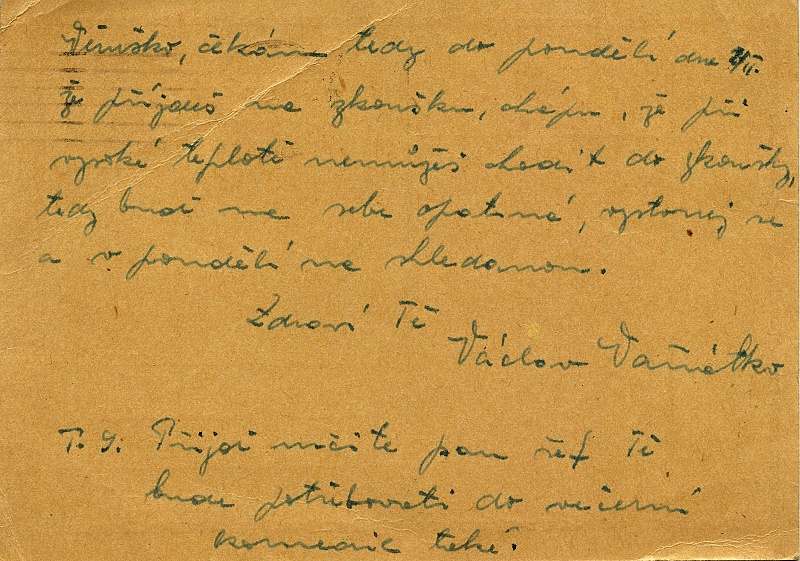 Věruško, čekám tedy do pondělí dne 7/II.
že přijdeš na zkoušku, chápu, že při
vysoké teplotě nemůžeš chodit do zkoušky,
tedy buď na sebe opatrná, vystonej se
a v pondělí na shledanou.
Zdraví Tě
Václav Vaňátko
P. S. Přijď určitě pan šéf Tě
bude potřebovati do večerní
komedie také.